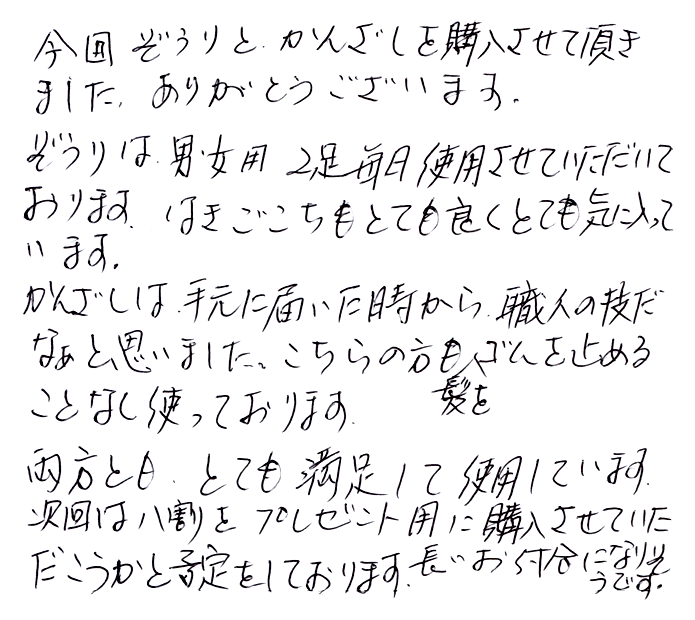 今回 ぞうりと かんざしを購入させて頂き
ました。ありがとうございます。
ぞうりは、男女用 2足毎日使用させていただいて
おります。はきごこちもとても良くとても気に入って
います。
かんざしは、手元に届いた時から、職人の技だ
なぁと思いました。こちらの方も、髪をゴムを止める
ことなく使っております。
両方とも、とても満足して使用しています。
次回は八割をプレゼント用に購入させていた
だこうかと予定をしております。長いお付合になりそ
うです。